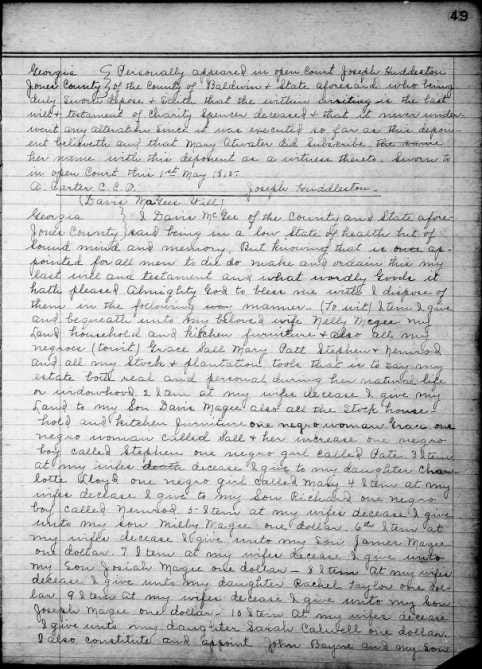 49
Georgia } Personally appeared in open Court Joseph Huddleston
Jones County } of the County of Baldwin & State aforesaid who being
duly Sworn depose & Saith that the within writing is the last
will & testament of Charity Spencer deceased & that it never under-
went any alteration since it was executed so far as this depon-
ent believeth and that Mary Atwater did Subscribe the same
her name with this deponent as a witness thereto. Sworn to
in open Court this 1st May 1815.
A. Carter C.C.O. Joseph Huddleston.
(Davis McGees Will)
Georgia } I Davis McGee of the County and State afore-
Jones County } said being in a low State of health but of
Sound mind and memory. But knowing that is once ap-
pointed for all men to die do make and ordain this my
last will and testament and what wordly Goods it
hath pleased Almighty God to bless me with I dispose of
them in the following manner. (To wit) 1 Item I give
and bequeath unto my beloved wife Nelly Mcgee my
Land household and kitchen furniture & also all my
negroes (towit) Grace Sall Mary Patt Stephen & Nemrod
and all my Stock & plantation tools that is to say my
estate both real and personal during her natural life
or widowhood. 2 Item at my wifes decease I give my
Land to my Son Davis Magee also all the Stock house-
hold and kitchen furniture one negro woman Grace one
negro woman called Sall & her increase one negro
boy called Stephen one negro girl called Pate. 3 Item
at my wifes death decease I give to my daughter Char-
lotte Floyd one negro girl called Mary 4 Item at my
wifes decease I give to my Son Richard one negro
boy called Nemrod 5 Item at my wifes decease I give
unto my son Milby Magee one dollar. 6th Item at
my wifes decease I give unto my Son James Magee
one dollar. 7 Item at my wifes decease I give unto
my Son Josiah Magee one dollar - 8 Item At my wifes
decease I give unto my daughter Rachel Taylor one dol-
lar 9 Item at my wifes decease I give unto my Son
Joseph Magee one dollar - 10 Item At my wifes decease
I give unto my daughter Sarah Calwell one dollar.
I also constitute and appoint John Bayne and my Son